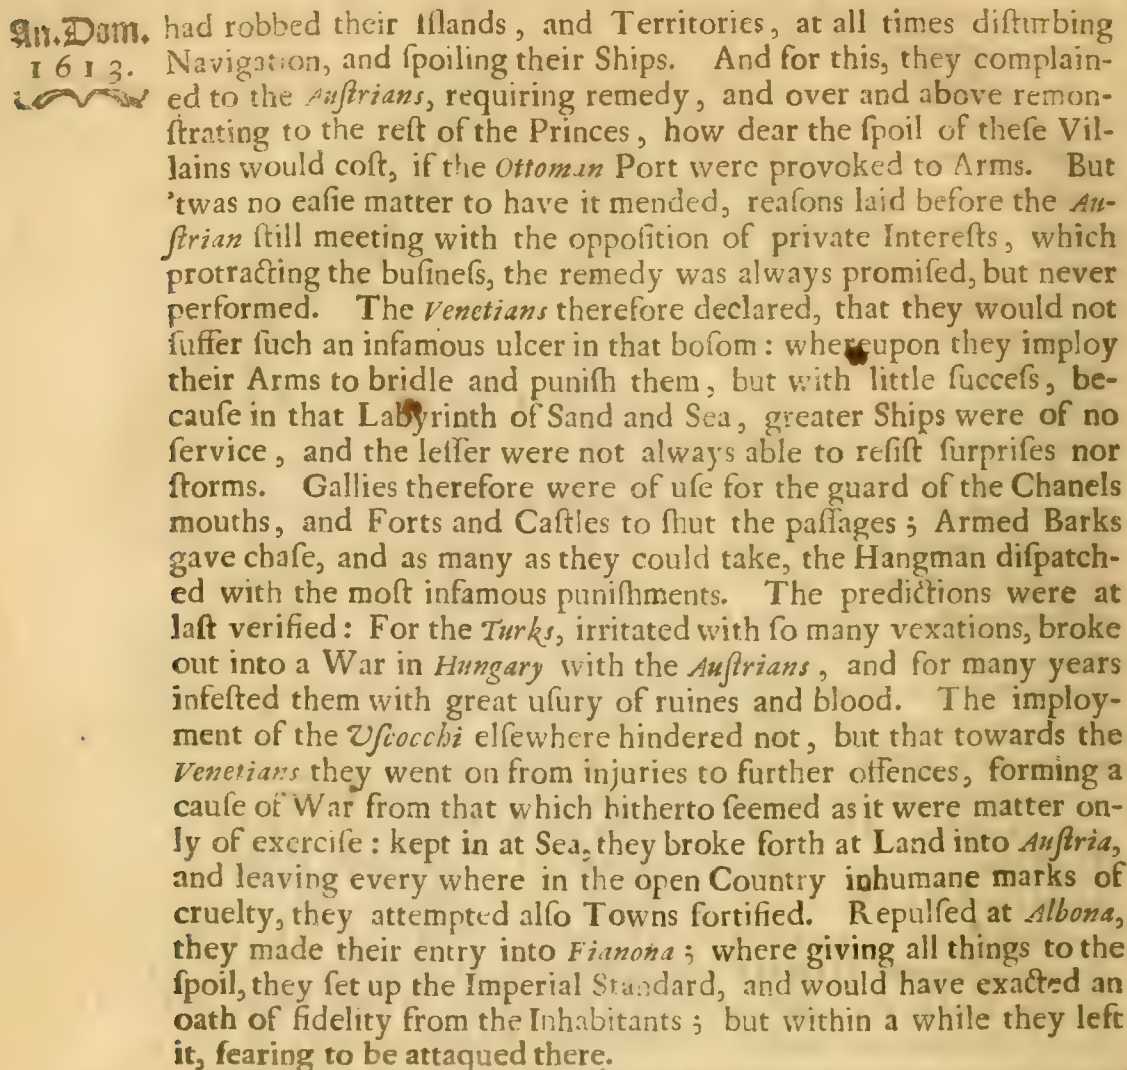 An.Dom. had robbed their Iſlands, and Territories, at all times diſturbing
1613. Navigation, and ſpoiling their Ships. And for this, they complain-
ed to the Auſtrians, requiring remedy, and over and above remon-
ſtrating to the reſt of the Princes, how dear the ſpoil of theſe Vil-
lains would coſt, if the Ottoman Port were provoked to Arms. But
'twas no eaſie matter to have it mended, reaſons laid before the Au-
ſtrian ſtill meeting with the oppoſition of private Intereſts, which
protracting the buſineſs, the remedy was always promiſed, but never
performed. The Venetians therefore declared, that they would not
ſuffer ſuch an infamous ulcer in that boſom: whereupon they imploy
their Arms to bridle and puniſh them, but with little ſucceſs, be-
cauſe in that Labyrinth of Sand and Sea, greater Ships were of no
ſervice, and the leſſer were not always able to reſiſt ſurpriſes nor
ſtorms. Gallies therefore were of uſe for the guard of the Chanels
mouths, and Forts and Caſtles to ſhut the paſſages; Armed Barks
gave chaſe, and as many as they could take, the Hangman diſpatch-
ed with the moſt infamous puniſhments. The predictions were at
laſt verified: For the Turks, irritated with ſo many vexations, broke
out into a War in Hungary with the Auſtrians, and for many years
infeſted them with great uſury of ruines and blood. The imploy-
ment of the Uſcocchi elſewhere hindered not, but that towards the
Venetians they went on from injuries to further offences, forming a
cauſe of War from that which hitherto ſeemed as it were matter on-
ly of exerciſe: kept in at Sea, they broke forth at Land into Auſtria,
and leaving every where in the open Country inhumane marks of
cruelty, they attempted alſo Towns fortified. Repulſed at Albona,
they made their entry into Fianona; where giving all things to the
ſpoil, they ſet up the Imperial Standard, and would have exacted an
oath of fidelity from the Inhabitants; but within a while they left
it, fearing to be attaqued there.